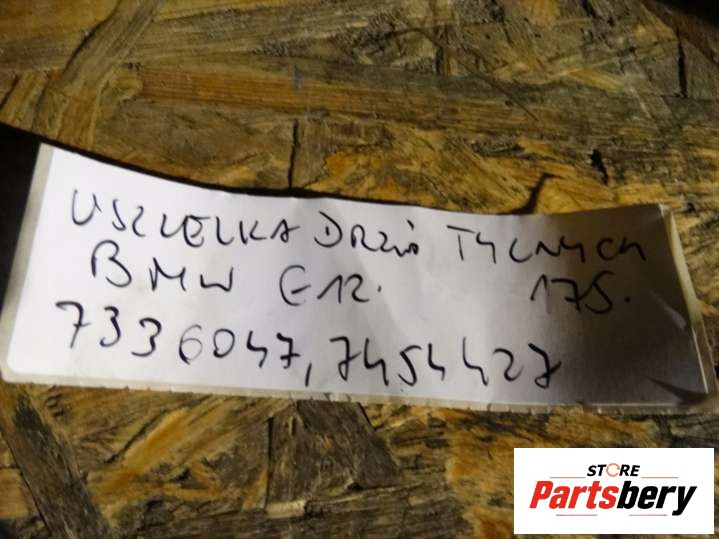 USZCZELKA DRZWI TYLNYCH
BMW G12. 175.
7336047, 7454427
STORE
Partsbery